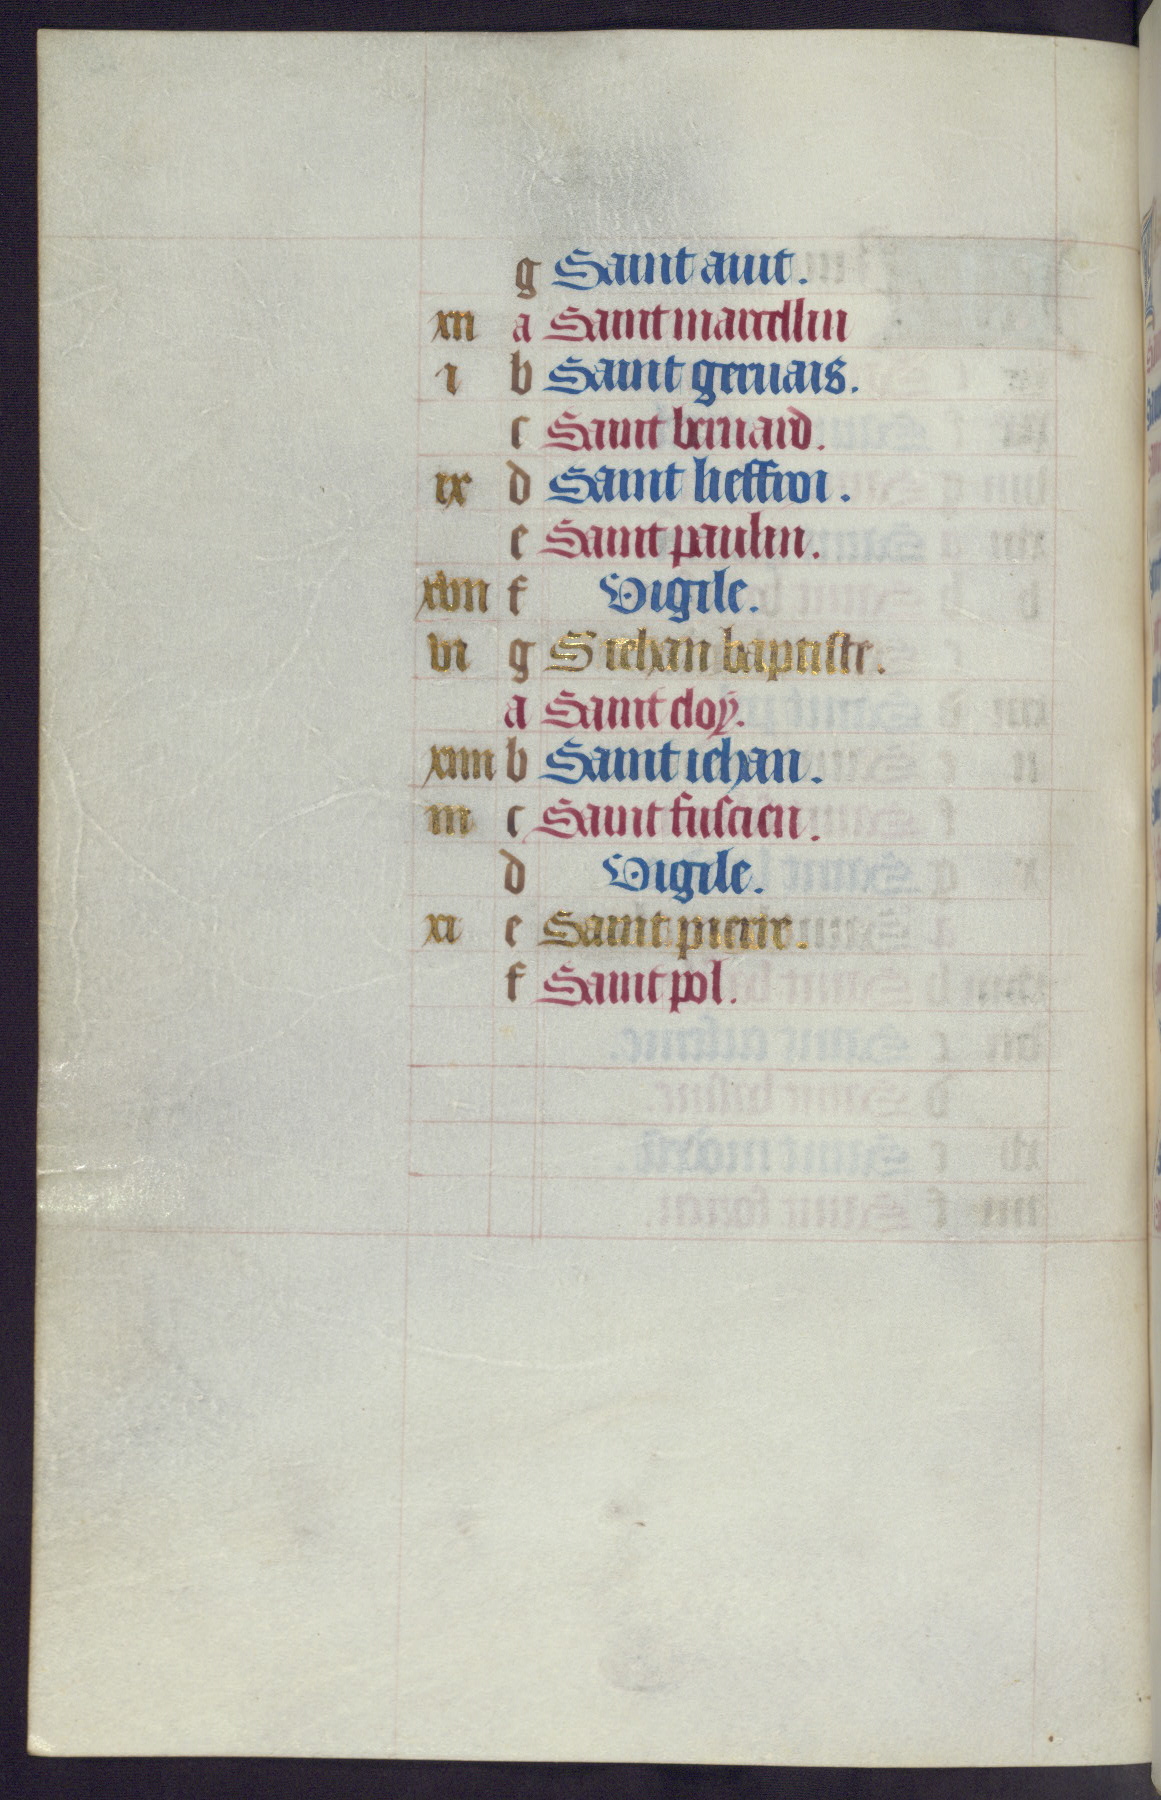 g Saint auit.
xii a Saint marcellin
i b Saint geruais.
c Saint bernard.
ix d Saint lieffroi.
e Saint paulin.
xvii f Vigile.
vi g S iehan baptiste.
a Saint eloy.
xiiii b Saint iehan.
iii c Saint fuscien.
d Vigile.
xi e Saint pierre.
f Saint pol.